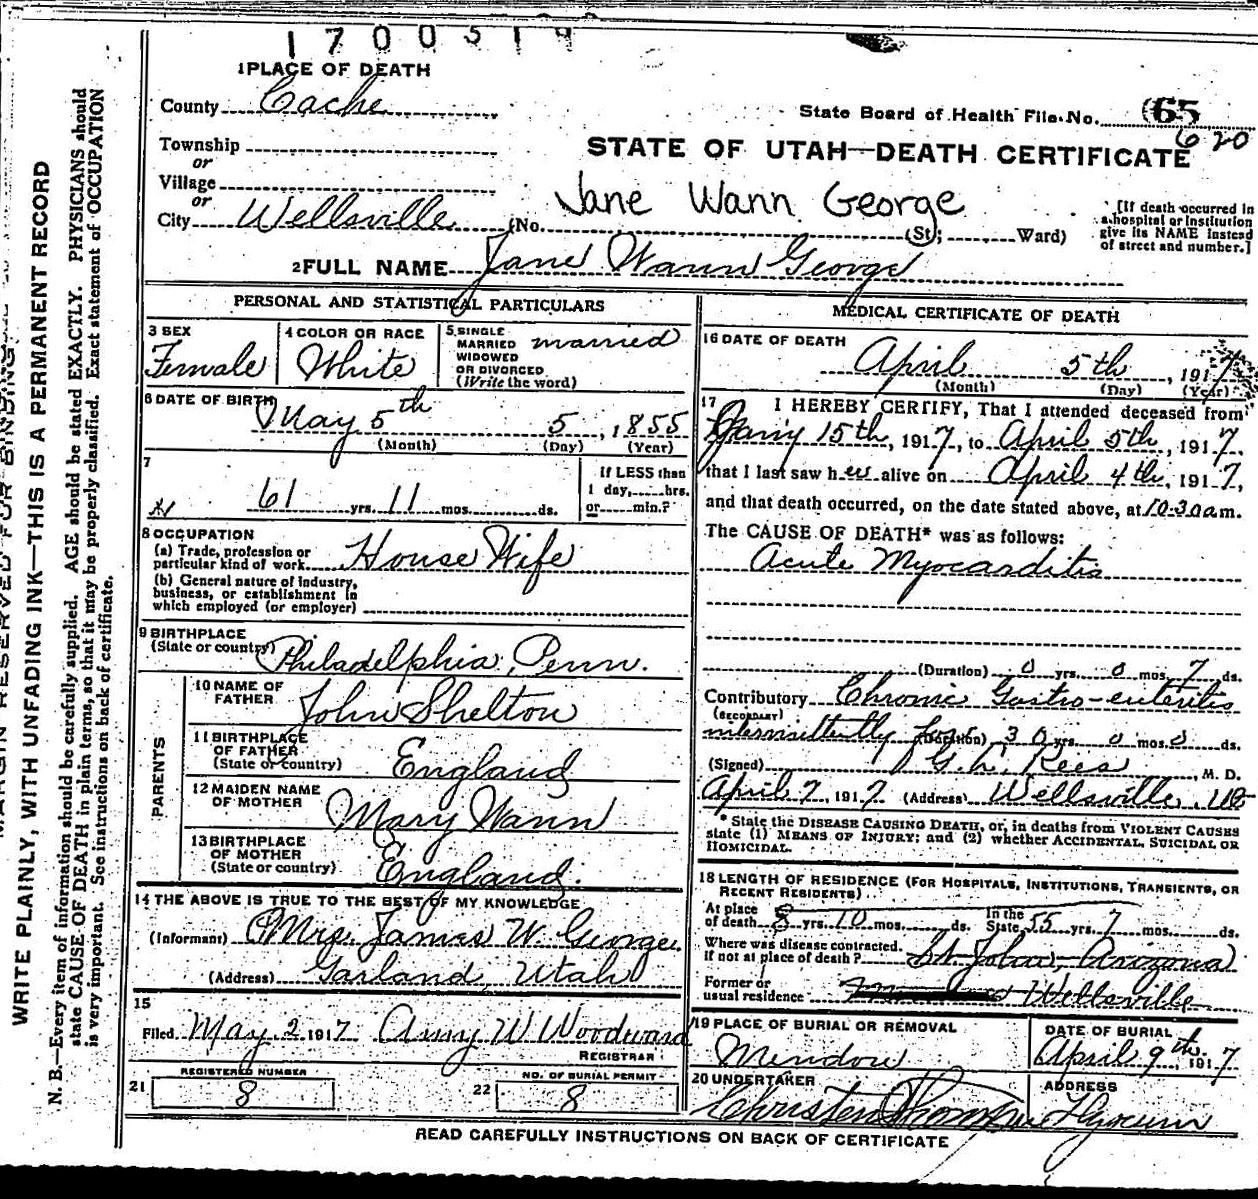 1 7 0 0 3 1 9
1 PLACE OF DEATH
County Cache
State Board of Health File No. 65
620
Township
or
Village
or
City Wellsville (No. St; Ward)
STATE OF UTAH—DEATH CERTIFICATE
Jane Wann George
[If death occurred in
a hospital or institution
give its NAME instead
of street and number.]
2 FULL NAME Jane Wann George
PERSONAL AND STATISTICAL PARTICULARS
3 SEX
Female
4 COLOR OR RACE
White
5 SINGLE
MARRIED
WIDOWED
OR DIVORCED
(Write the word)
married
6 DATE OF BIRTH
May 5th 5, 1855
(Month) (Day) (Year)
7
61 yrs. 11 mos. ds.
If LESS than
1 day, hrs.
or min.?
8 OCCUPATION
(a) Trade, profession or
particular kind of work House Wife
(b) General nature of industry,
business, or establishment in
which employed (or employer)
9 BIRTHPLACE
(State or country) Philadelphia, Penn.
PARENTS
10 NAME OF
FATHER John Shelton
11 BIRTHPLACE
OF FATHER
(State or country) England
12 MAIDEN NAME
OF MOTHER Mary Wann
13 BIRTHPLACE
OF MOTHER
(State or country) England.
14 THE ABOVE IS TRUE TO THE BEST OF MY KNOWLEDGE
(Informant) Mrs. James W. George
(Address) Garland, Utah
15
Filed May 2 1917 Amy W Woodward
REGISTRAR
21 REGISTERED NUMBER
8
22 NO. OF BURIAL PERMIT
8
MEDICAL CERTIFICATE OF DEATH
16 DATE OF DEATH
April 5th, 1917
(Month) (Day) (Year)
17 I HEREBY CERTIFY, That I attended deceased from
15th, 1917, to April 5th, 1917,
that I last saw her alive on April 4th, 1917,
and that death occurred, on the date stated above, at 10-30 a m.
The CAUSE OF DEATH* was as follows:
Acute Myocarditis
(Duration) 0 yrs. 0 mos. 7 ds.
Contributory Chronic Gastro-enteritis
(SECONDARY)
intermittently for (Duration) 30 yrs. 0 mos. 0 ds.
(Signed) Rees, M. D.
April 7, 1917. (Address) Wellsville, Ut
* State the DISEASE CAUSING DEATH, or, in deaths from VIOLENT CAUSES
state (1) MEANS OF INJURY; and (2) whether ACCIDENTAL, SUICIDAL OR
HOMICIDAL.
18 LENGTH OF RESIDENCE (FOR HOSPITALS, INSTITUTIONS, TRANSIENTS, OR
RECENT RESIDENTS)
At place
of death 8 yrs. 10 mos. ds. In the
State 55 yrs. 7 mos. ds.
Where was disease contracted.
If not at place of death? St. Johns, Arizona
Former or
usual residence Wellsville
19 PLACE OF BURIAL OR REMOVAL
Mendon
DATE OF BURIAL
April 9th, 1917
20 UNDERTAKER
ADDRESS
Hyrum
READ CAREFULLY INSTRUCTIONS ON BACK OF CERTIFICATE
MARGIN RESERVED FOR BINDING
WRITE PLAINLY, WITH UNFADING INK—THIS IS A PERMANENT RECORD
N. B.—Every item of information should be carefully supplied. AGE should be stated EXACTLY. PHYSICIANS should
state CAUSE OF DEATH in plain terms, so that it may be properly classified. Exact statement of OCCUPATION
is very important. See instructions on back of certificate.